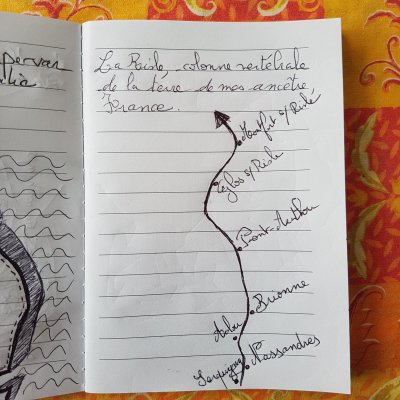 La Risle, colonne vertébrale
de la terre de mes ancêtre
France.
Montfort s/ Risle
Glos s/ Risle
Pont-Authou
Brionne
Nassandres
Serquigny